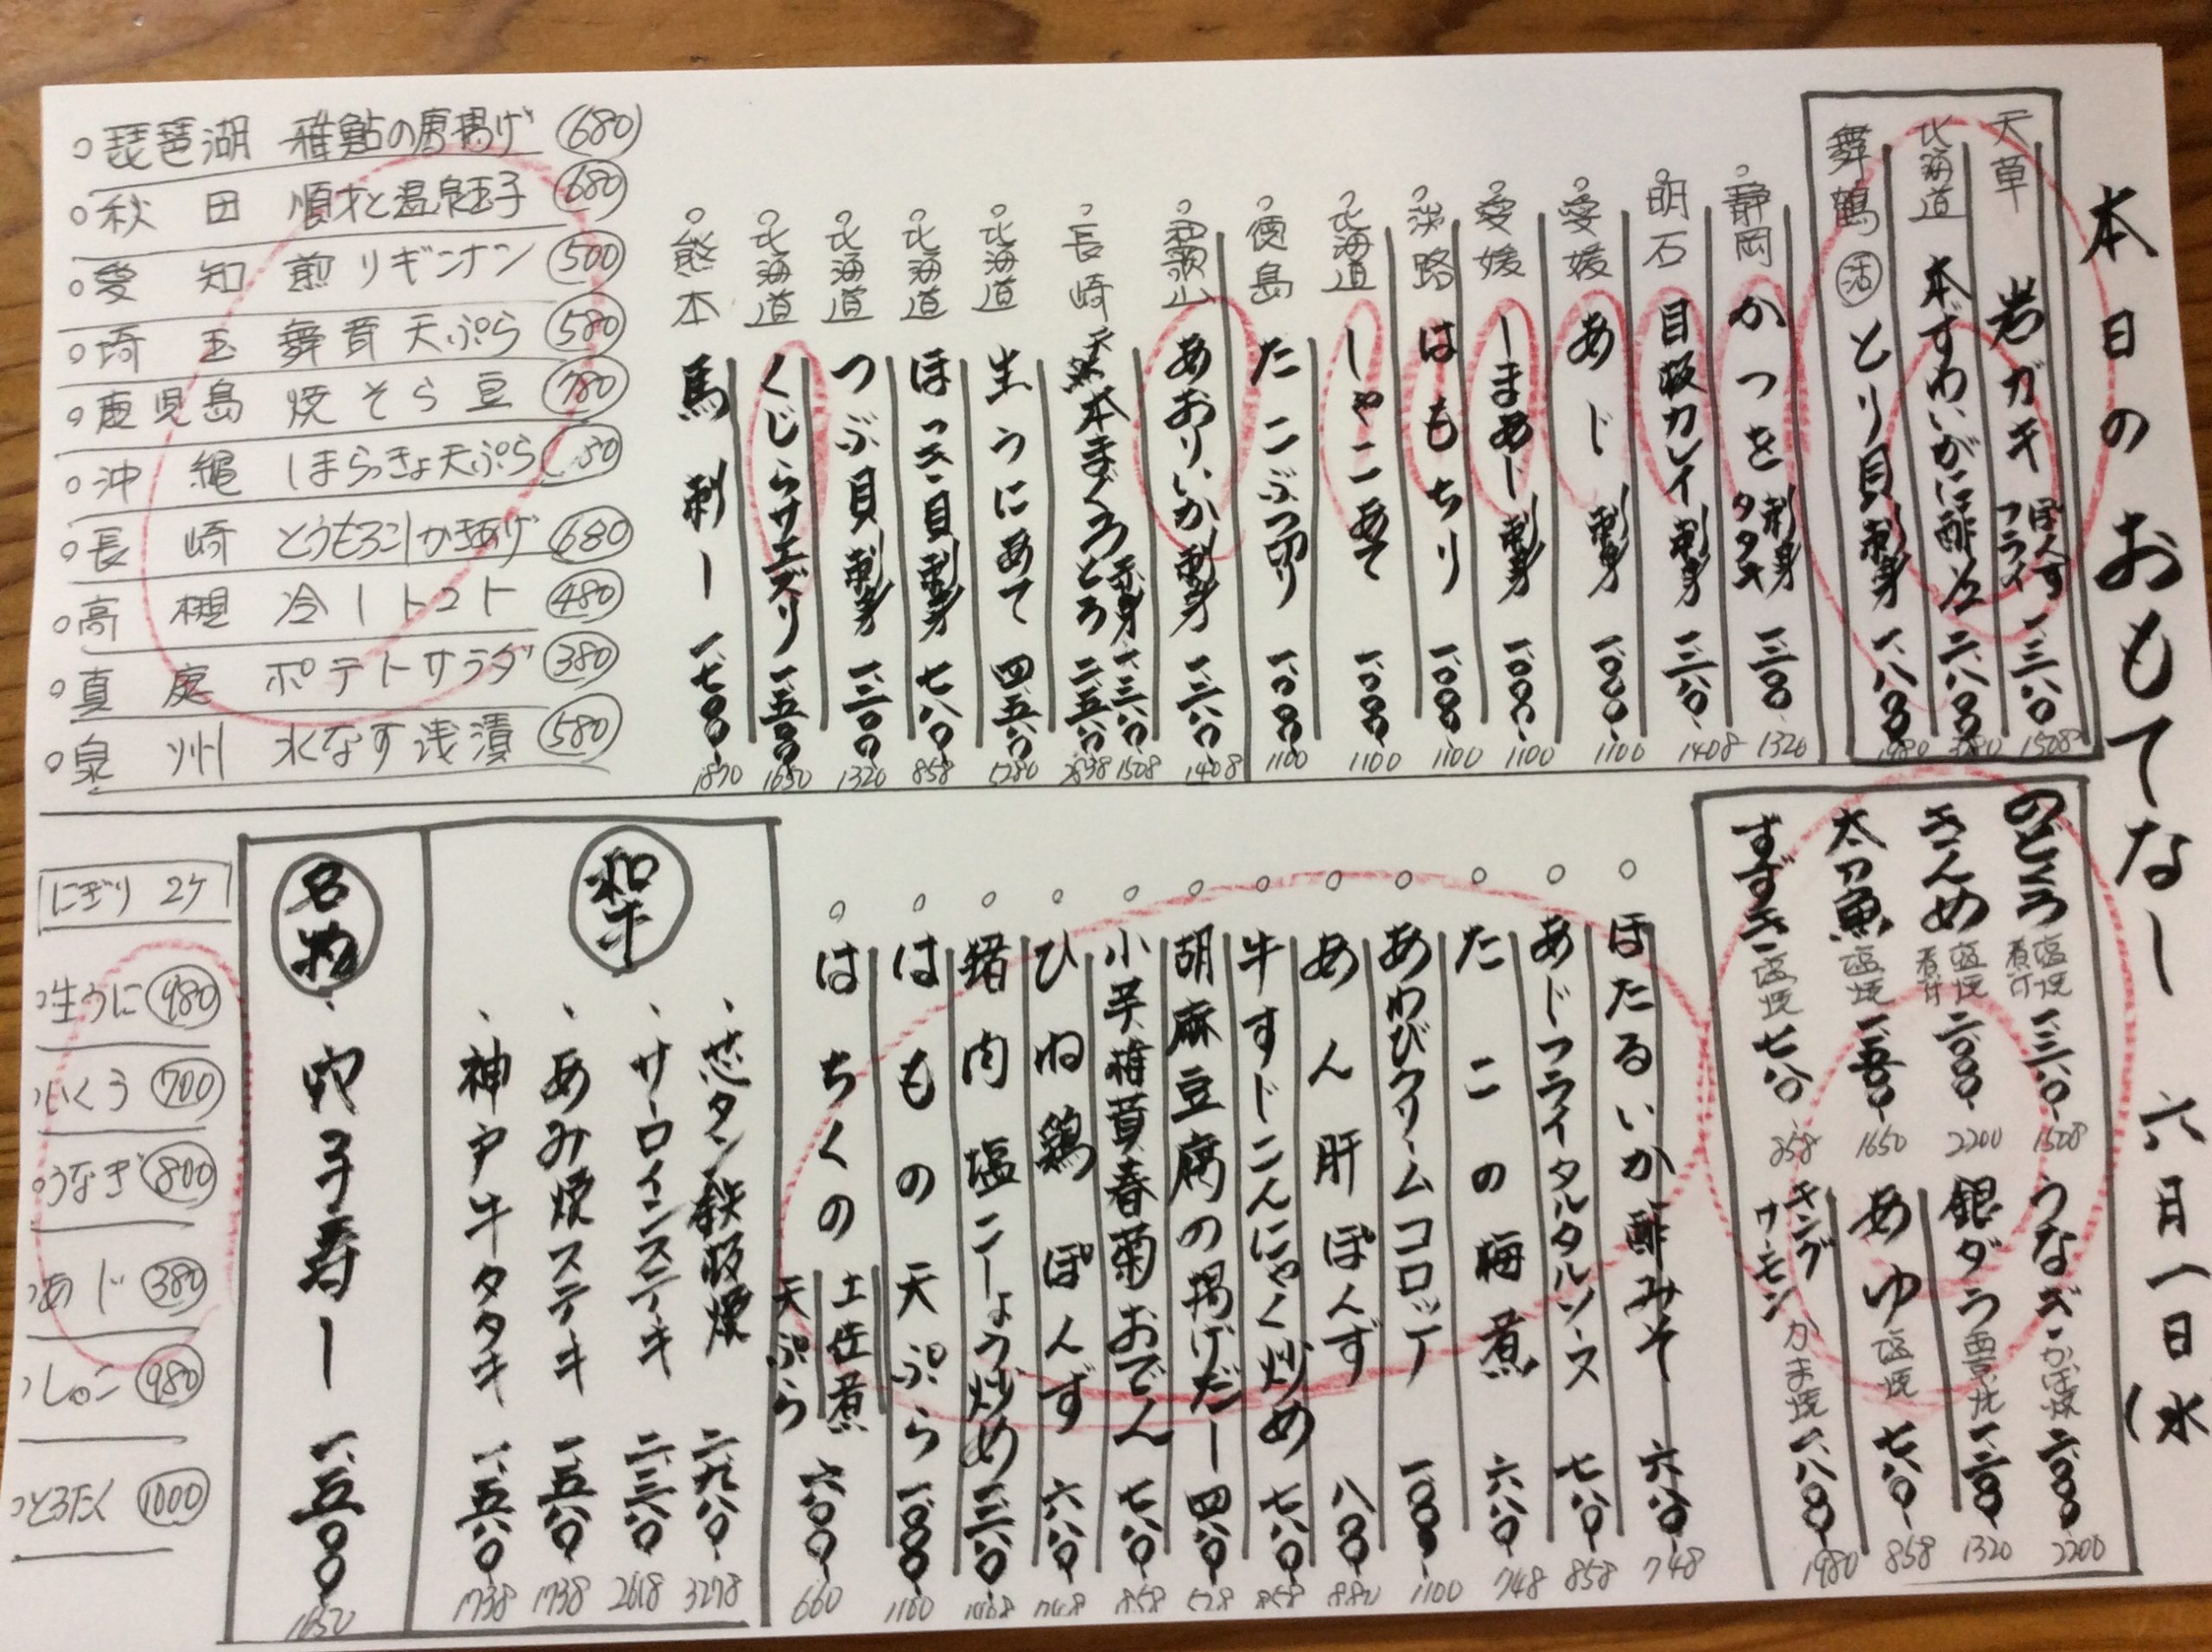 本日のおもてなし 六月一日(水
天草 岩ガキ ぽんず フライ 一、三八〇 1508
北海道 本ずわいがに酢 二、八〇〇
舞鶴 活 とり貝 刺身 一、八〇〇 1980
静岡 かつを 刺身 タタキ 一、二〇〇 1320
明石 目板カレイ 刺身 一、二八〇 1408
愛媛 あじ 刺身 一、〇〇〇 1100
愛媛 しまあじ 刺身 一、〇〇〇 1100
淡路 はもちり 一、〇〇〇 1100
北海道 しゃこあて 一、〇〇〇 1100
徳島 たこぶつ切り 一、〇〇〇 1100
和歌山 あおりいか 刺身 一、二八〇 1408
長崎 本まぐろ 赤身 一、三八〇 1508 とろ 二、五八〇 2838
北海道 生うにあて 四、八〇〇 5280
北海道 ほっき貝 刺身 七八〇 858
北海道 つぶ貝 刺身 一、二〇〇 1320
北海道 くじらサエズリ 一、五〇〇 1650
熊本 馬刺し 一、七〇〇 1870
琵琶湖 稚鮎の唐揚げ 680
秋田 順才と温泉玉子 680
愛知 煎りギンナン 500
埼玉 舞茸天ぷら 580
鹿児島 焼そら豆 780
沖縄 しまらっきょ天ぷら
長崎 とうもろこしかきあげ 680
高槻 冷しトマト 480
真庭 ポテトサラダ 380
泉州 水なす浅漬 580
のどぐろ 塩焼 煮付 一、三八〇 1508
きんめ 塩焼 煮付 二、〇〇〇 2200
太刀魚 塩焼 一、五〇〇 1650
すずき 塩焼 七八〇 858
うなぎ かば焼 二、〇〇〇 2200
銀ダラ 西京焼 一、二〇〇 1320
あゆ 塩焼 七八〇 858
キングサーモン かま焼 一、八〇〇 1980
ほたるいか酢みそ 六八〇 748
あじフライタルタルソース 七八〇 858
たこの梅煮 六八〇 748
あわびクリームコロッケ 一、〇〇〇 1100
あん肝ぽんず 八〇〇 880
牛すじこんにゃく炒め 七八〇 858
胡麻豆腐の揚げだし 四八〇 528
小芋椎茸春菊おでん 七八〇 858
ひね鶏ぽんず 六八〇 748
猪肉塩こしょう炒め
はもの天ぷら 一、〇〇〇 1100
はちくの 土佐煮 天ぷら 六〇〇 660
和牛
芯タン鉄板焼 二、九八〇 3278
サーロインステーキ 二、三八〇 2618
あみ焼ステーキ 一、五八〇 1738
神戸牛タタキ 一、五八〇 1738
名物
穴子寿し 一、五〇〇 1650
にぎり 2ケ
生うに 980
いくら 700
うなぎ 800
あじ 380
しゃこ 980
とろたく 1000